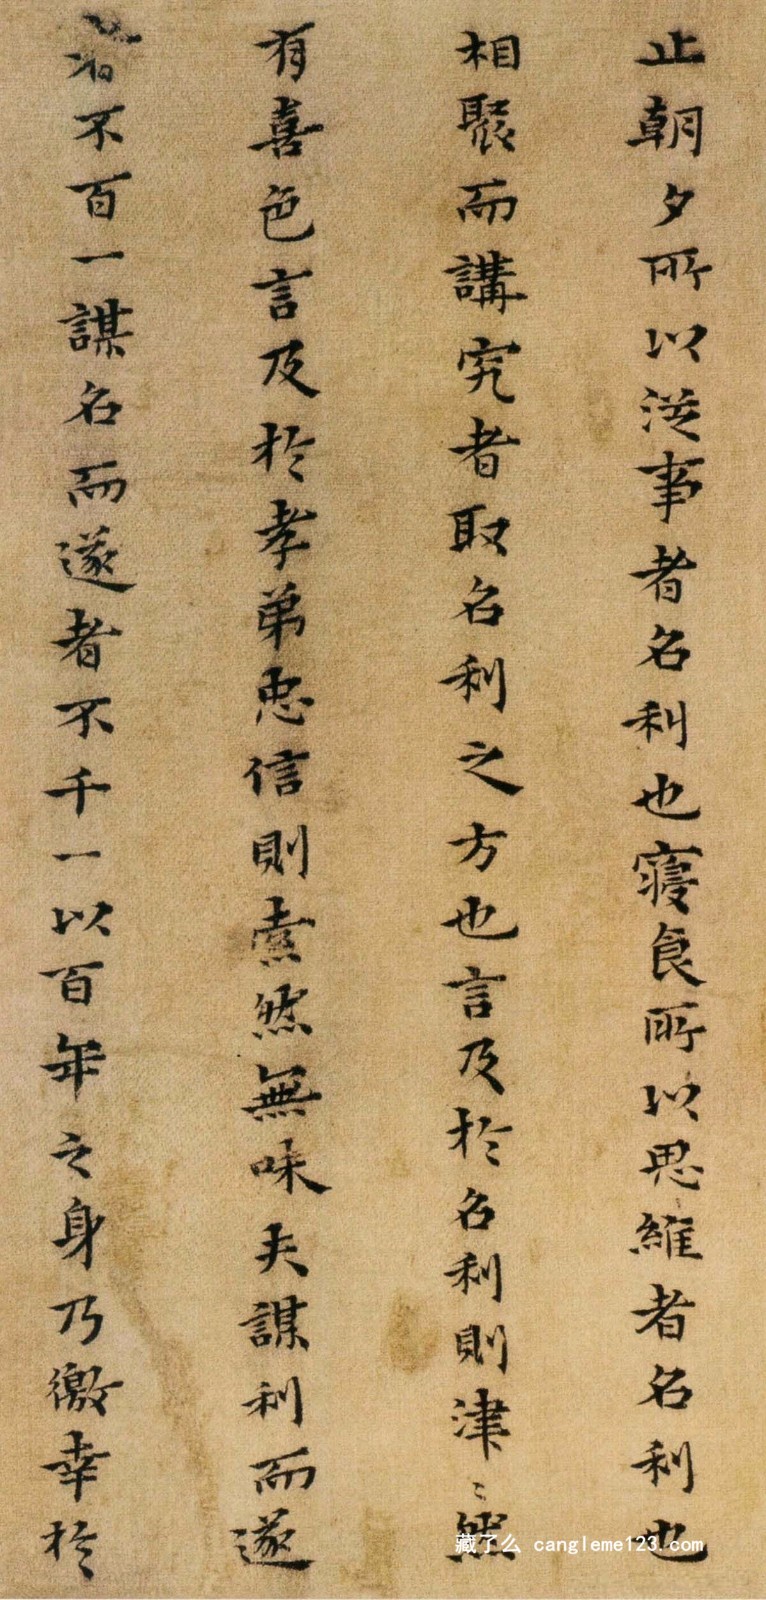 止朝夕所以從事者名利也寢食所以思維者名利也
相聚而講究者取名利之方也言及於名利則津〻然
有喜色言及於孝弟忠信則索然無味夫謀利而遂
者不百一謀名而遂者不千一以百年之身乃徼幸於
藏了么 cangleme123.com